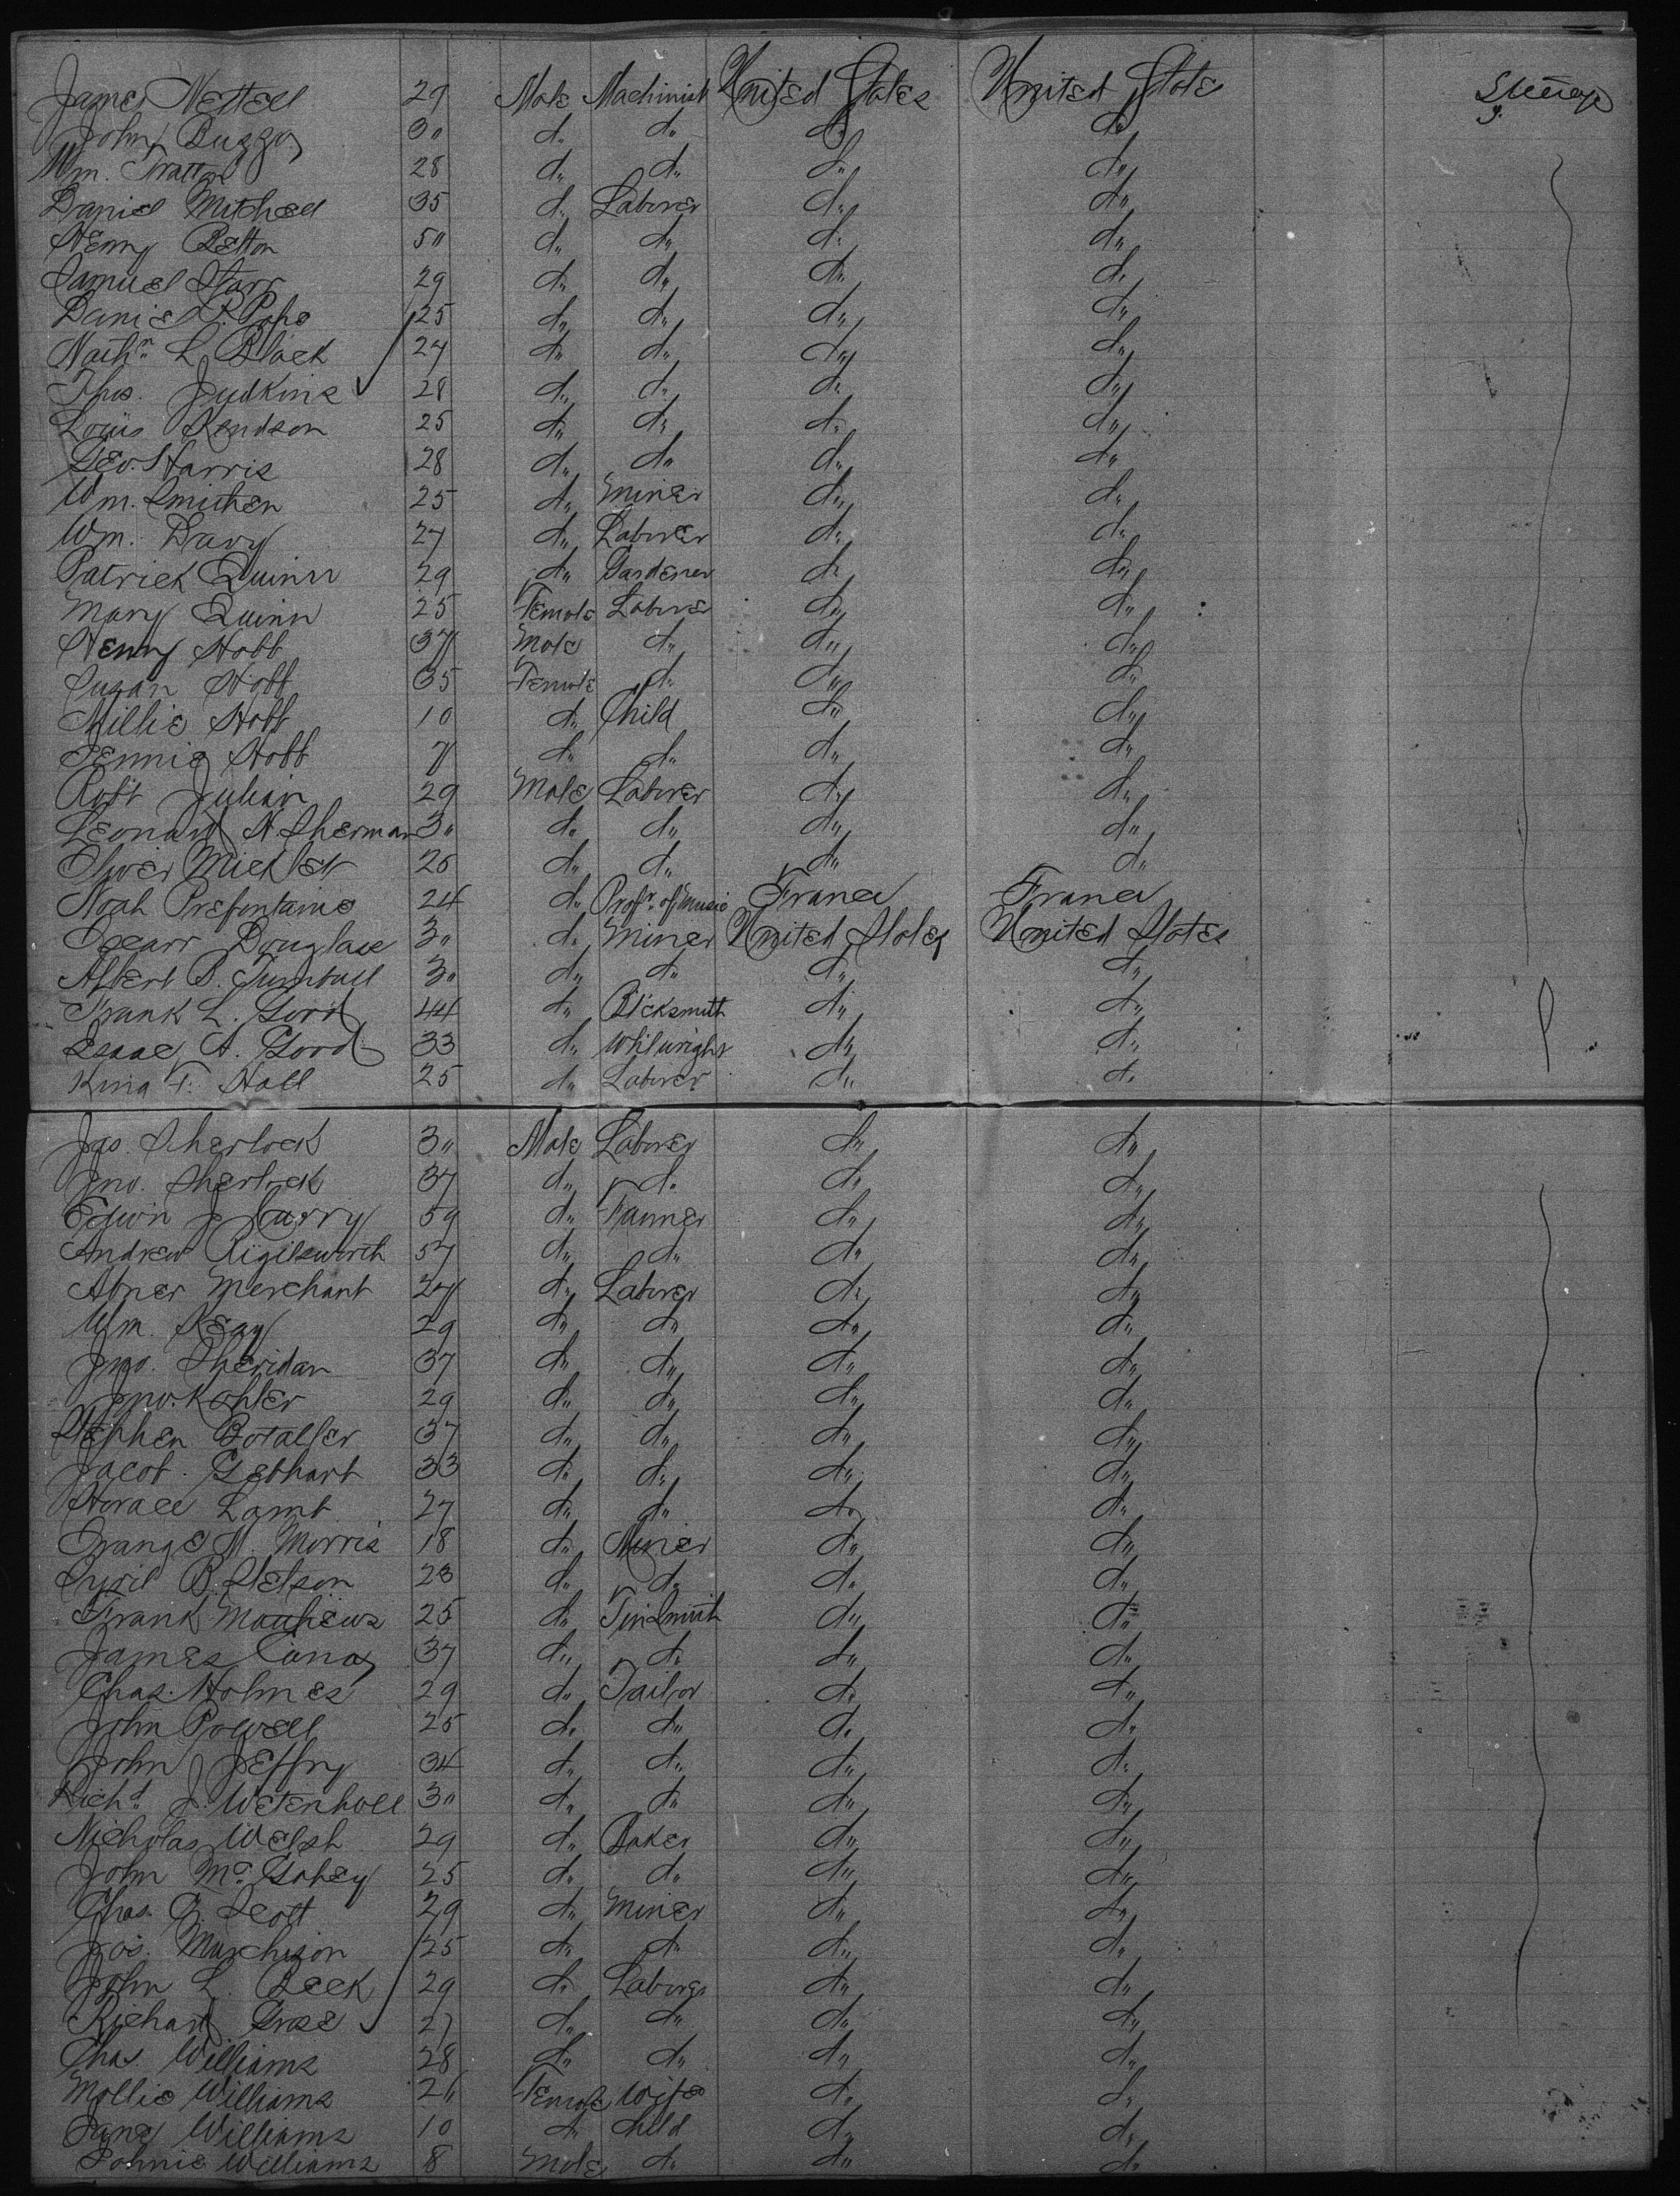 James Nettell 29 Male Machinist United States United State Steerage
John Buzzo 30 do. do. do. do.
Wm. Tratton 28 do. do. do. do.
Daniel Mitchell 35 do. Laborer do. do.
Henry Belton 50 do. do. do. do.
Samuel Starr 29 do. do. do. do.
Daniel P. Pope 25 do. do. do. do.
Nathn. L. Black 27 do. do. do. do.
Thos. Judkins 28 do. do. do. do.
Louis Kendson 25 do. do. do. do.
Geo. Harris 28 do. do. do. do.
Wm. Smithen 25 do. Miner do. do.
Wm. Davy 27 do. Laborer do. do.
Patrick Quinn 29 do. Gardener do. do.
Mary Quinn 25 Female Laborer do. do.
Henry Hobb 37 Male do. do. do.
Susan Hobb 35 Female do. do. do.
Millie Hobb 10 do. Child do. do.
Jennie Hobb 7 do. do. do. do.
Robt Julian 29 Male Laborer do. do.
Leonard N Sherman 30 do. do. do. do.
Oliver 26 do. do. do. do.
Noah Prefontaine 24 do. Profr. of Music France France
Oscarr Douglase 30 do. Miner United States United States
Albert B. Turnbull 30 do. do. do. do.
Frank L. Good 44 do. Blcksmith do. do.
Isaac A. Good 33 do. Whilwright do. do.
King T. Hall 25 do. Laborer do. do.
Jas. Sherlock 30 Male Laborer do. do.
Jno. Sherlock 37 do. do. do. do.
Edwin J Curry 59 do. Farmer do. do.
Andrew Rigilsworth 57 do. do. do. do.
Abner Merchant 27 do. Laborer do. do.
Wm. Keay 29 do. do. do. do.
Jno. Sheridan 37 do. do. do. do.
Jno. Kohler 29 do. do. do. do.
Stephen Botaller 37 do. do. do. do.
Jacob Gebhart 33 do. do. do. do.
Horace Lamb 27 do. do. do. do.
Orange M. Morris 18 do. Miner do. do.
Cyril B. Stetson 23 do. do. do. do.
Frank Mathews 25 do. TinSmith do. do.
James 37 do. do. do. do.
Chas. Holmes 29 do. Tailor do. do.
John Powell 25 do. do. do. do.
John Jeffry 34 do. do. do. do.
Richd. J. Wetenholl 30 do. do. do. do.
Nicholas Welsh 29 do. Baker do. do.
John Mc Gahey 25 do. do. do. do.
Chas. C. Scott 29 do. Miner do. do.
Jos. Murchison 25 do. do. do. do.
John L. Beck 29 do. Laborer do. do.
Richard Grose 27 do. do. do. do.
Chas. Williams 28 do. do. do. do.
Mollie Williams 26 Female Wife do. do.
Jane Williams 10 do. Child do. do.
Johnie Williams 8 Male do. do. do.